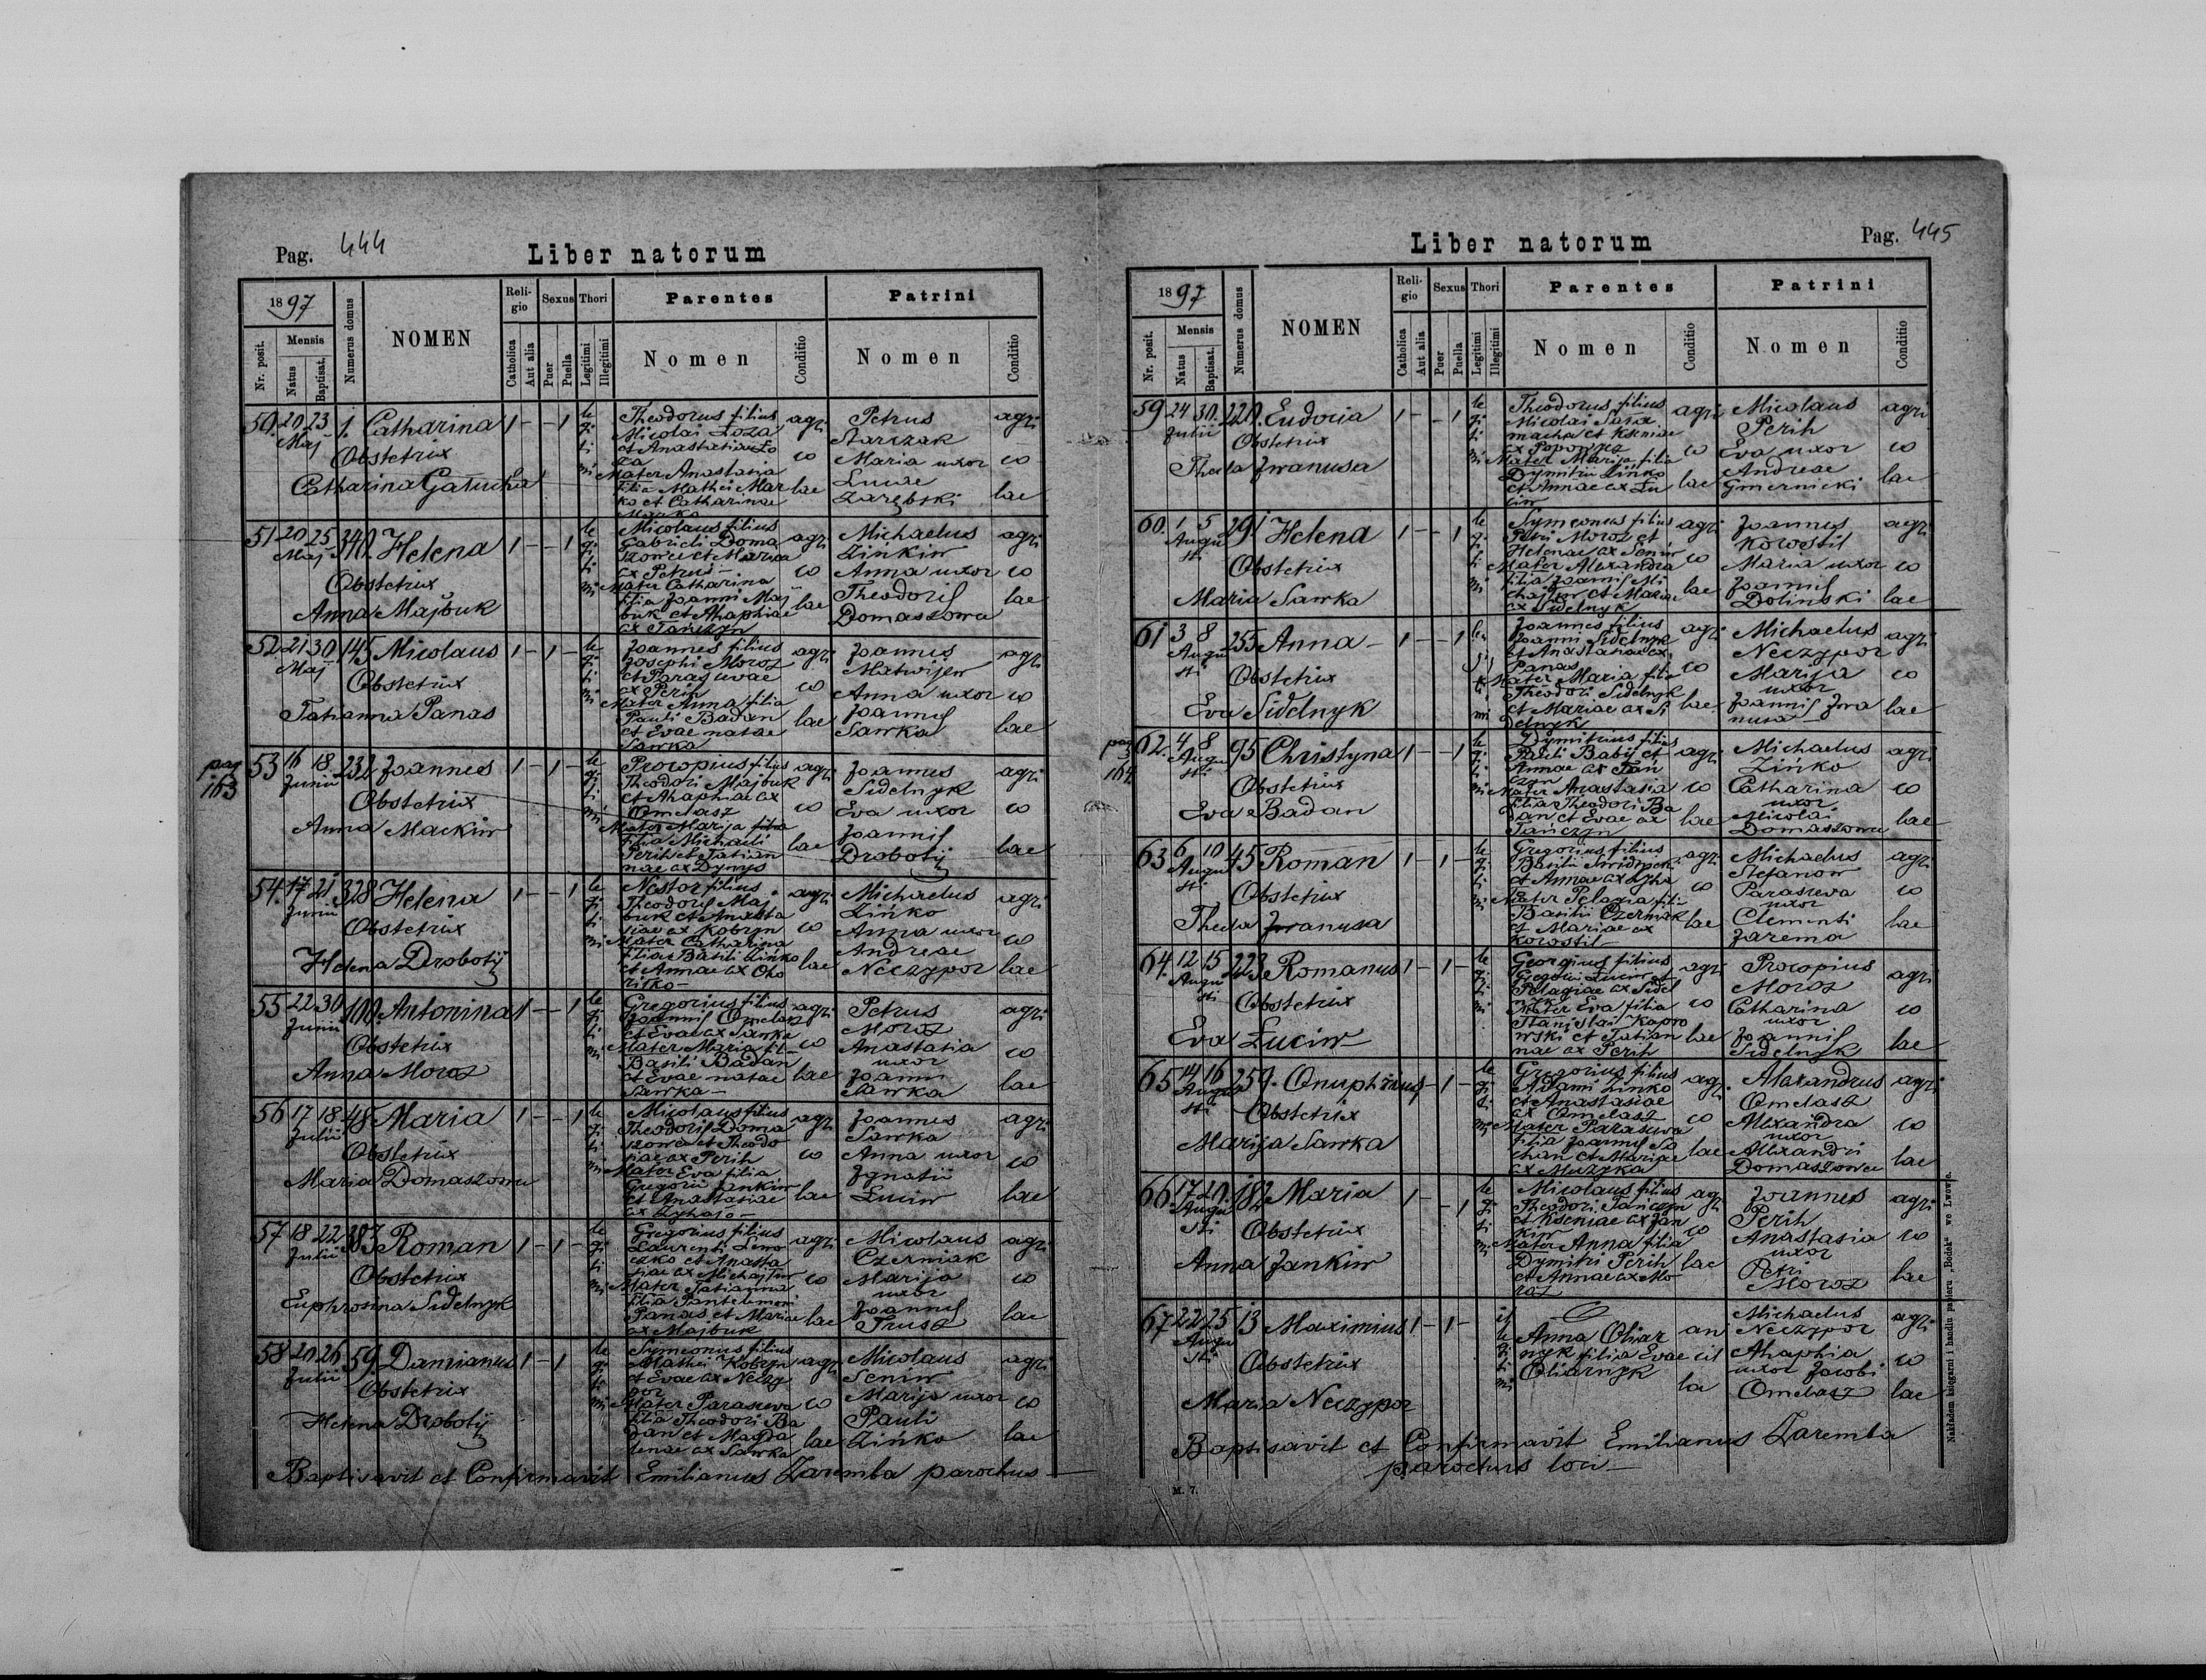 Pag. 444
Liber natorum
1897
Nr. posit.
Mensis
Natus
Baptisat.
Numerus domus
NOMEN
Religio
Catholica
Aut alia
Sexus
Puer
Puella
Thori
Legitimi
Illegitimi
Parentes
Nomen
Conditio
Patrini
Nomen
Conditio
50. 20 23 Maj 1. Catharina 1 - - 1 legitimi
Obstetrix
Catharina
Theodorus filius
Nicolai Łoza
et Anastasia Ło
za
Mater Anastasia
filia Mathei Mar
ko et Catharinae
Marko
agricolae
Petrus
Starczak
Maria uxor
Lucae
Zarębski
agricolae
51 20 25 Maj 340. Helena 1 - - 1 legitimi
Obstetrix
Anna Majbuk
Nicolaus filius
Gabrieli Doma
szowci et Mariae
ex Petrus -
Mater Catharina
filia Joanni Maj
buk et Ahaphiae
ex Tańczyn
agricolae
Michaelus
Zińkiw
Anna uxor
Theodoris
Domaszowci
agricolae
52 21 30 Maj 145 Nicolaus 1 - 1 - legitimi
Obstetrix
Tatianna Panas
Joannes filius
Josephi Moroz
et Parascevae
ex Perih
Mater Anna filia
Pauli Badan
et Evae natae
Sawka
agricolae
Joannes
Matwijew
Anna uxor
Joannis
Sawka
agricolae
pag 163
53 16 18 Junii 232 Joannes 1 - 1 - legitimi
Obstetrix
Anna Mackiw
Procopius filius
Theodori Majbuk
et Ahaphiae ex
Omelasz
Mater Marija filia
filia Michaeli
Perih et Tatian
nae ex Dmys
agricolae
Joannes
Sidelnyk
Eva uxor
Joannis
Drobotij
agricolae
54. 17 21 Junii 328 Helena 1 - - 1 legitimi
Obstetrix
Helena Drobotij
Nestor filius
Theodoris Maj
buk et Anasta
siae ex Kobryn
Mater Catharina
filia Basili Zińko
et Annae ex Oho
ritko -
agricolae
Michaelus
Zińko
Anna uxor
Andreae
Neczypor
agricolae
55 22 30 Junii 100. Antonina 1 - - 1 legitimi
Obstetrix
Anna Moroz
Gregorius filius
Joannis Omelasz
et Evae ex Sawka
Mater Maria fil -
Basili Badan
et Evae natae
Sawka -
agricolae
Petrus
Moroz
Anastasia
uxor
Joannis
Sawka
agricolae
56 17 18 Julii 48 Maria 1 - - 1 legitimi
Obstetrix
Maria Domaszowci
Nicolaus filius
Theodoris Doma
szowci et Theodo
siae ex Perih
Mater Eva filia
Gregorii Jankiw
et Anastasiae
agricolae
Joannes
Sawka
Anna uxor
Ignatii
Luciw
agricolae
57 18 22 Julii 303 Roman 1 - 1 - legitimi
Obstetrix
Euphrosina Sidelnyk
Gregorius filius
Laurenti Seno
czko et Anasta
siae ex Michajliw
Mater Tatianna
filia Pantelimoni
Panas et Mariae
ex Majbuk
agricolae
Nicolaus
Czerniak
Marija
uxor
Joannis
Trusz
agricolae
58 20 26 Julii 59. Damianus 1 - 1 legitimi
Obstetrix
Helena Drobotij
Symeonus filius
Mathei Kobryn
et Evae ex Neczy
por
Mater Parasceva
filia Theodori Ba
dan et Magda
lenae ex Sawka
agricolae
Nicolaus
Seniw
Marija uxor
Pauli
Zińko
agricolae
Baptisavit et Confirmavit Emilianus Zaremba parochus
Liber natorum
Pag. 445
1897
Nr. posit.
Mensis
Natus
Baptisat.
Numerus domus
NOMEN
Religio
Catholica
Aut alia
Sexus
Puer
Puella
Thori
Legitimi
Illegitimi
Parentes
Nomen
Conditio
Patrini
Nomen
Conditio
59 24 30. Julii 220. Eudocia 1 - - 1 legitimi
Obstetrix
Thecla Iwanusa
Theodorus filius
Nicolai
macha et Kseniae
ex Popowycz
Mater Marija filia
Dymitrii Zińko
et Annae ex Lu
ciw
agricolae
Nicolaus
Perih
Eva uxor
Andreae
Gmernicki
agricolae
60. 1 5 Augusti 291 Helena 1 - - 1 legitimi
Obstetrix
Maria Sawka
Symeonus filius
Petri Moroz et
Helenae ex Seniw
Mater Alexandra
filia Joannis Mi
chajliw et Mariae
ex Sidelnyk
agricolae
Joannes
Korostil
Maria uxor
Joannis
Dolinski
agricolae
61 3 8 Augusti 255 Anna - 1 - - 1
Obstetrix
Eva Sidelnyk
Joannes filius
Joanni Sidelnyk
et Anastasiae ex
Panas
Mater Maria filia
Theodori Sidelnyk
et Mariae ex Si
delnyk
agricolae
Michaelus
Neczypor
Marija
uxor
Joannis Iwa
nusa -
agricolae
pag 164.
62. 4 8 Augusti 95 Christyna 1 - - 1 legitimi
Obstetrix
Eva Badan
Dymitrius filius
Pauli Babij et
Annae ex Tań
czyn
Mater Anastasia
filia Theodori Ba
dan et Evae ex
Tańczyn
agricolae
Michaelus
Zińko
Catharina
uxor
Nicolai
Domaszowci
agricolae
63 6 10 Augusti 45 Roman 1 - 1 - legitimi
Obstetrix
Thecla Iwanusa
Gregorius filius
Basilii
et Annae ex
Mater Pelagia fili
Basilii Czerniak
et Mariae ex
Korostil -
agricolae
Michaelus
Stefanow
Parasceva
uxor
Clementi
Jarema
agricolae
64. 12 15 Augusti 223 Romanus 1 - 1 - legitimi
Obstetrix
Eva Luciw
Georgius filius
Gregorii Luciw et
Pelagiae ex Sidel
nyk
Mater Eva filia
Stanislai Kapro
wski et Tatian
nae ex Perih
agricolae
Procopius
Moroz
Catharina
uxor
Joannis
Sidelnyk
agricolae
65 14 16 Augusti 259. Onuphrius 1 - 1 - legitimi
Obstetrix
Marija Sawka
Gregorius filius
Adami Zinko
et Anastasiae
ex Omelasz
Mater Parasceva
filia Joannis So
chan et Mariae
ex Muzyka
agricolae
Alexandrus
Omelasz
Alexandra
uxor
Alexandri
Domaszowci
agricolae
66 17 20. Augusti 182 Maria 1 - - 1 legitimi
Obstetrix
Anna Jankiw
Nicolaus filius
Theodori Tańczyn
et Kseniae ex Jan
kiw
Mater Anna filia
Dymitri Perih
et Annae ex Mo
roz
agricolae
Joannes
Perih
Anastasia
uxor
Petri
Moroz
agricolae
67 22 25 Augusti 13 Maximius 1 - 1 - illegitimi
Obstetrix
Maria Neczypor
Anna Oliar
nyk filia Evae
Oliarnyk
ancilla
Michaelus
Neczypor
Ahaphia
uxor Jacobi
Omelasz
agricolae
Baptisavit et Confirmavit Emilianus Zaremba
parochus loci -
M. 7.
Nakładem księgarni i handlu papieru „Bodek“ we Lwowie.